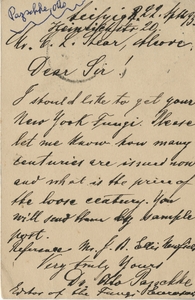 Pazschke, Otto
Leipzig, 22
Heinrichstr. 20.
Mr. C. L. Shear, Alcove.
Dear Sir!
I should like to get your
New York Fungi. Please
let me know how many
centuries are issued now
and what is the price of
the loose century. You
will send them by sample
post.
Reference Mr. J. B. Ellis
Very truly Yours
Dr. Otto Pazschke
Editor of the Fungi